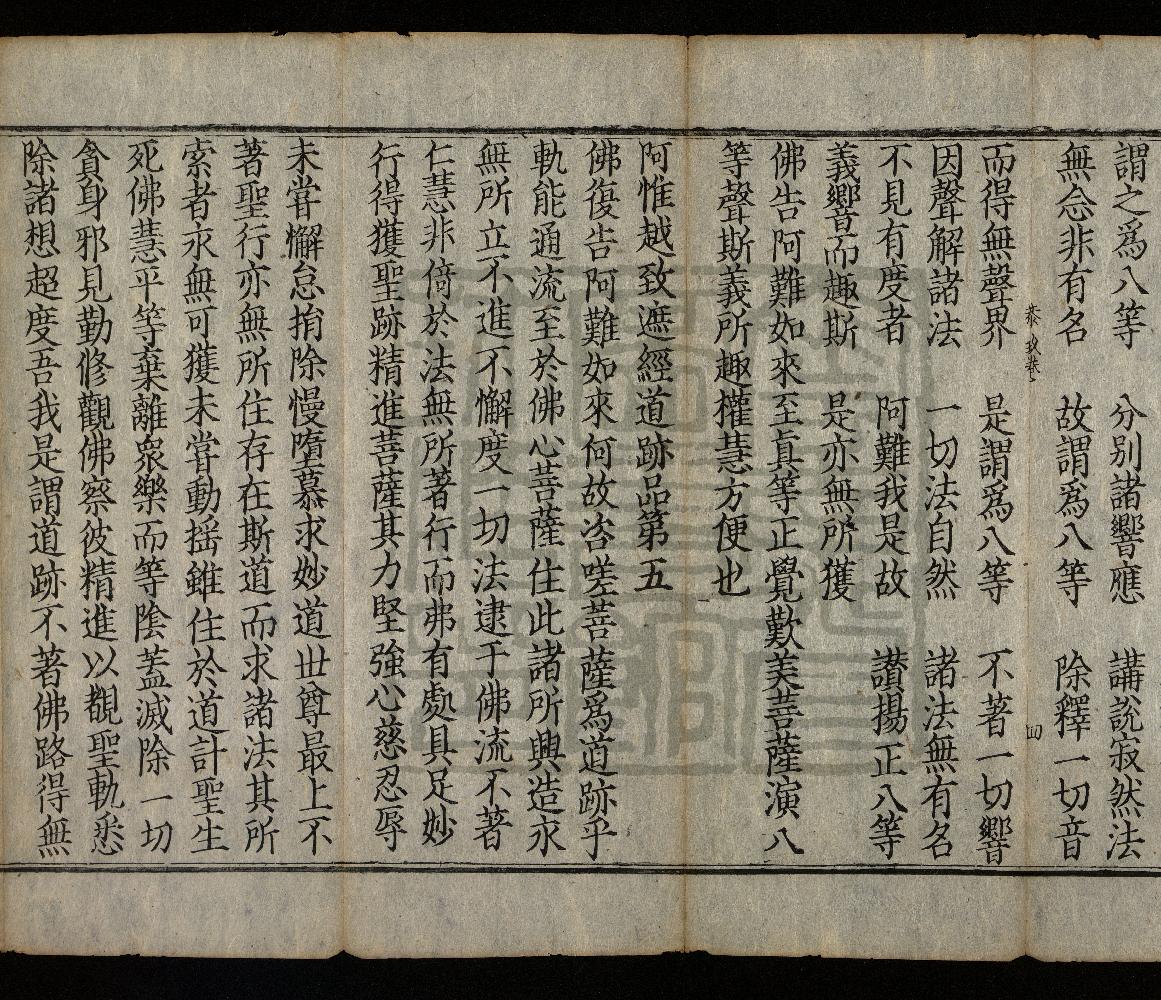 謂之爲八等　分別諸響應　講說寂然法
無念非有名　故謂爲八等　除釋一切音
四
而得無聲界　是謂爲八等　不著一切響
因聲解諸法　一切法自然　諸法無有名
不見有度者　阿難我是故　讃揚正八等
義響而趣斯　是亦無所獲
佛告阿難如來至眞等正覺歎美菩薩演八
等聲斯義所趣權慧方便也
阿惟越致遮經道跡品第五
佛復告阿難如來何故咨嗟菩薩爲道跡乎
軌能通流至於佛心菩薩住此諸所興造求
無所立不進不懈度一切法逮于佛流不著
仁慧非倚於法無所著行而弗有處具足妙
行得獲聖跡精進菩薩其力堅強心慈忍辱
未甞懈怠捐除慢墮慕求妙道世尊最上不
著聖行亦無所住存在斯道而求諸法其所
索者永無可獲未甞動摇雖住於道計聖生
死佛慧平等棄離衆樂而等陰蓋滅除一切
貪身邪見勤修觀佛察彼精進以覩聖軌悉
除諸想超度吾我是謂道跡不著佛路得無